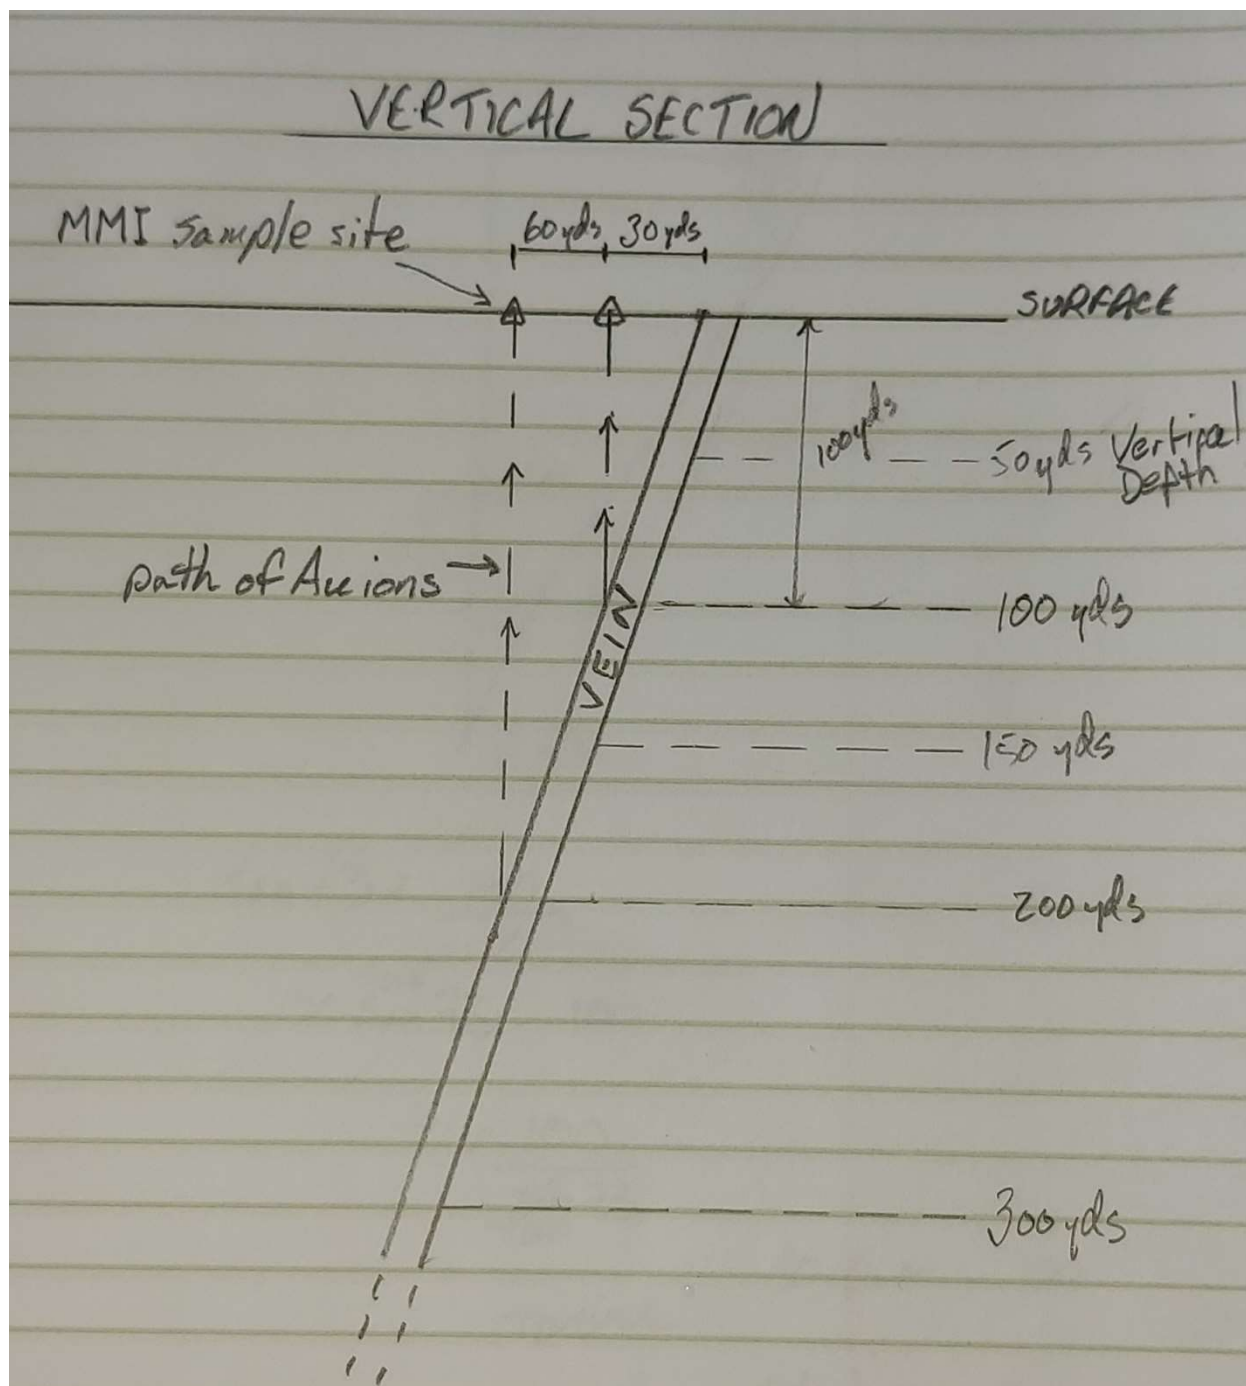 VERTICAL SECTION
MMI sample site
60yds 30yds
SURFACE
100yds
50yds Vertical
Depth
path of Au ions
100 yds
VEIN
150 yds
200yds
300yds